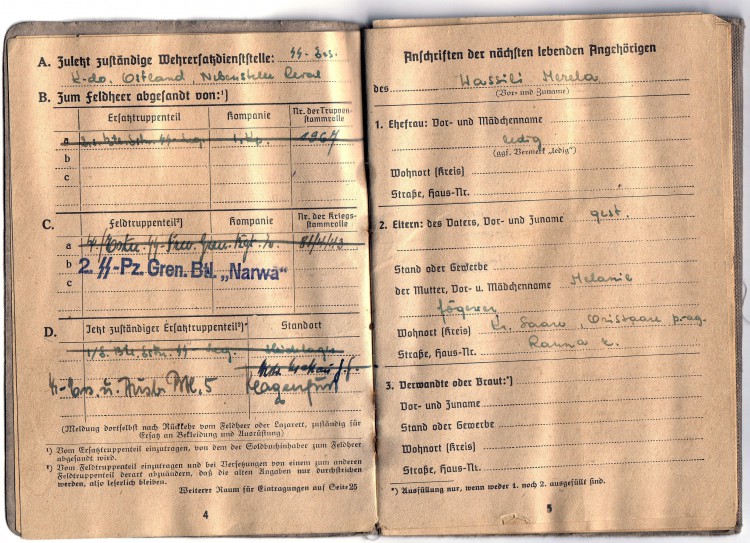 A. Zuletzt zuständige Wehrersatzdienststelle: SS-Ers.
K-do. Ostland, Nebenstelle Reval
B. Zum Feldheer abgesandt von:¹)
Ersatztruppenteil
Kompanie
Nr. der Truppenstammrolle
a
1967
b
c
C.
Feldtruppenteil²)
Kompanie
Nr. der Kriegsstammrolle
a
b 2. SS-Pz. Gren. Btl. „Narwa"
c
D.
Jetzt zuständiger Ersatztruppenteil²)*
Standort
5
Klagenfurt
(Meldung dortselbst nach Rückkehr vom Feldheer oder Lazarett, zuständig für
Ersatz an Bekleidung und Ausrüstung)
¹) Vom Ersatztruppenteil einzutragen, von dem der Soldbuchinhaber zum Feldheer
abgesandt wird.
²) Vom Feldtruppenteil einzutragen und bei Versetzungen von einem zum anderen
Feldtruppenteil derart abzuändern, daß die alten Angaben nur durchstrichen
werden, also leserlich bleiben.
Weiterer Raum für Eintragungen auf Seite 25
4
Anschriften der nächsten lebenden Angehörigen
des Wassili Merela
(Vor- und Zuname)
1. Ehefrau: Vor- und Mädchenname
ledig
(ggf. Vermerk „ledig")
Wohnort (Kreis)
Straße, Haus-Nr.
2. Eltern: des Vaters, Vor- und Zuname gest.
Stand oder Gewerbe
der Mutter, Vor- u. Mädchenname Melanie
Jõgewer
Wohnort (Kreis) Kr. Saare, Orissaare
Straße, Haus-Nr. Ranna
3. Verwandte oder Braut:*)
Vor- und Zuname
Stand oder Gewerbe
Wohnort (Kreis)
Straße, Haus-Nr.
*) Ausfüllung nur, wenn weder 1. noch 2. ausgefüllt sind.
5